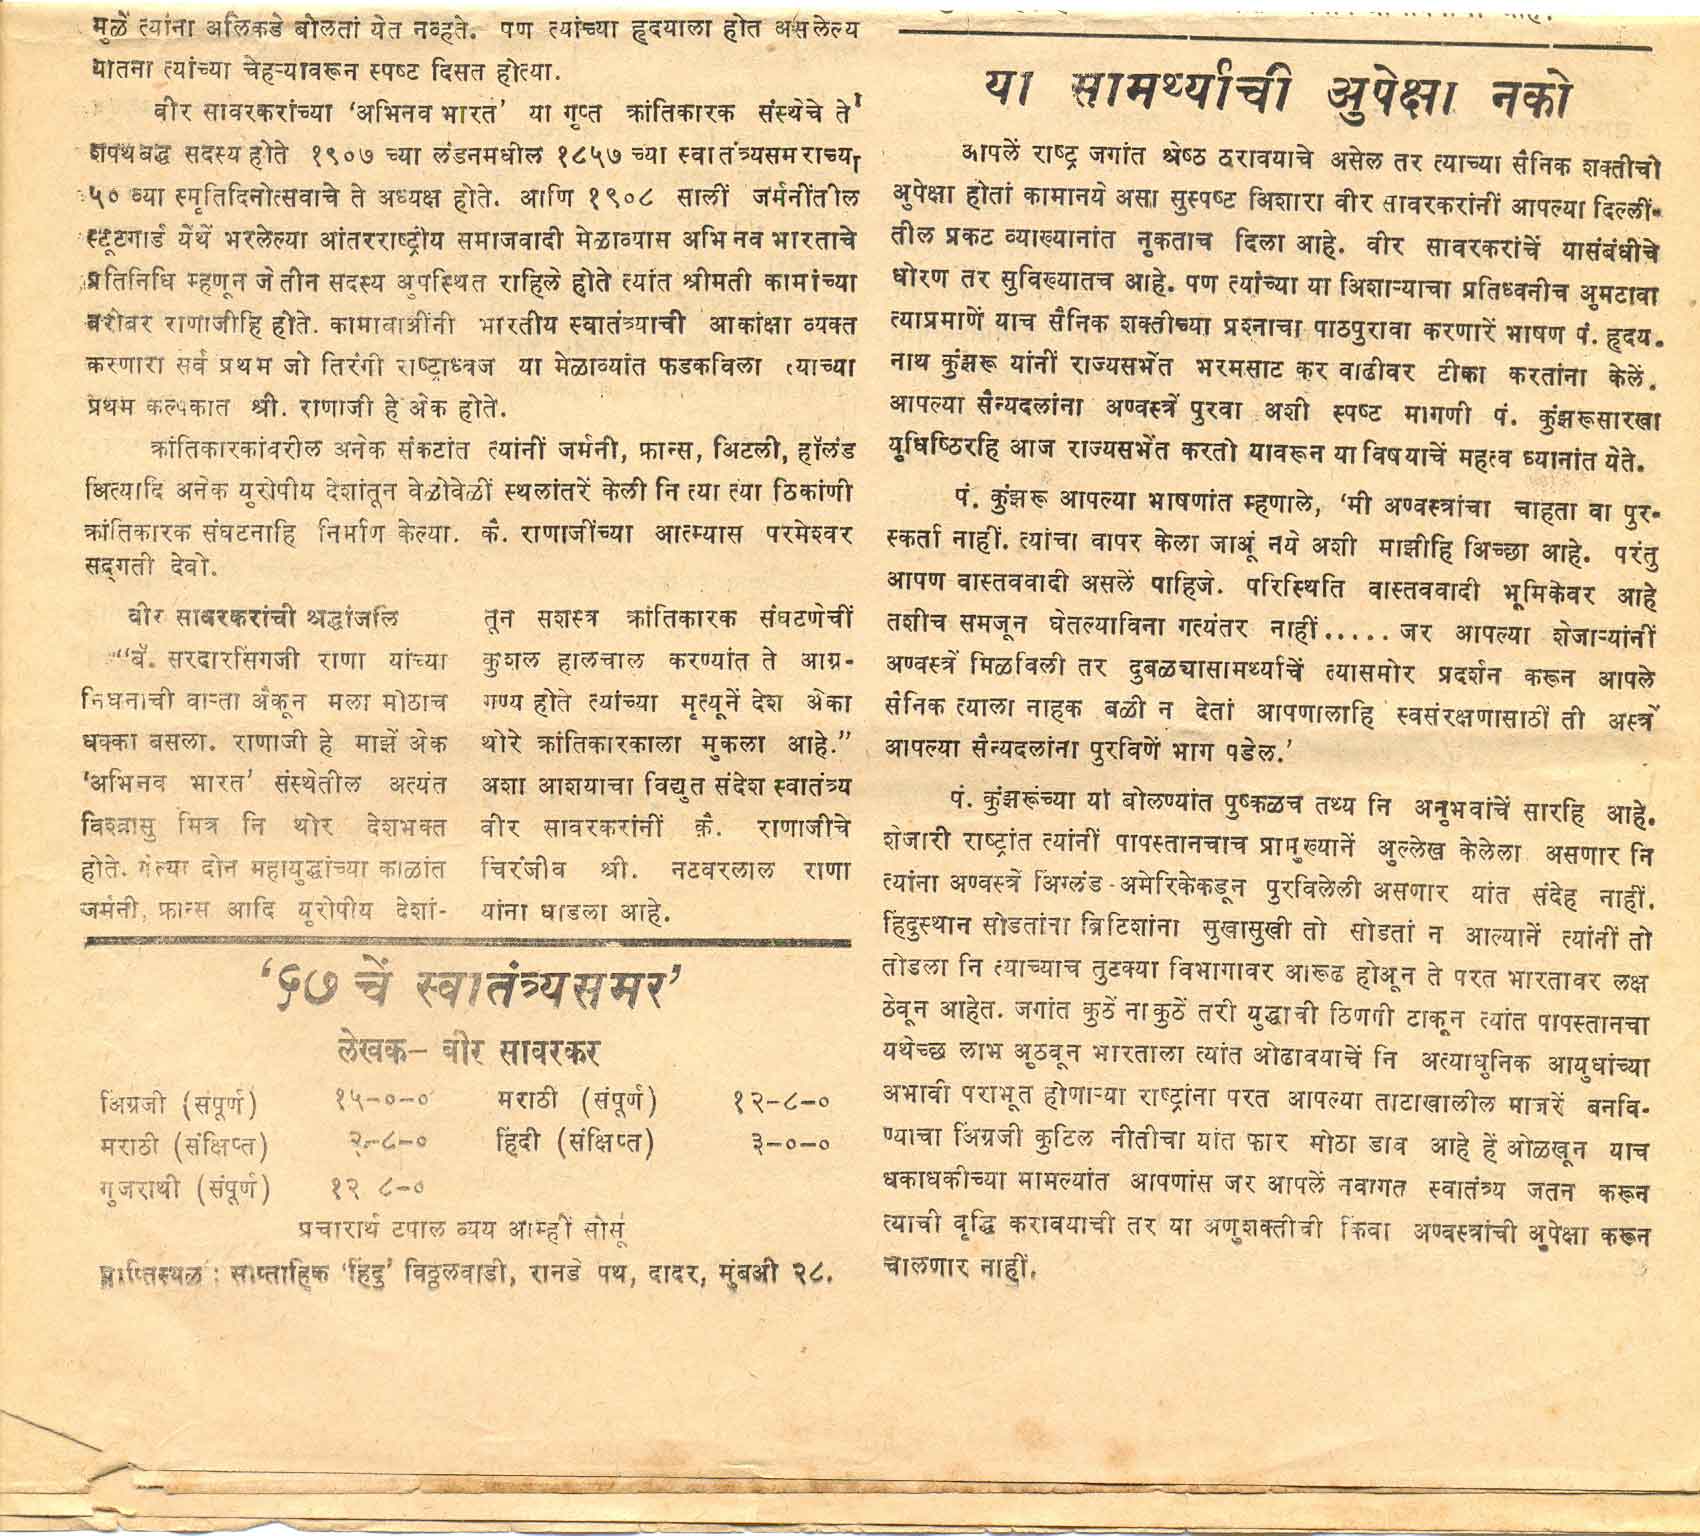 मुळें त्यांना अलिकडे बोलतां येत नव्हते. पण त्यांच्या हृदयाला होत असलेल्य
यातना त्यांच्या चेहऱ्यावरून स्पष्ट दिसत होत्या.
वीर सावरकरांच्या ‘अभिनव भारत’ या गुप्त क्रांतिकारक संस्थेचे ते
शपथबद्ध सदस्य होते १९०७ च्या लंडनमधील १८५७ च्या स्वातंत्र्यसमराच्या
५० व्या स्मृतिदिनोत्सवाचे ते अध्यक्ष होते. आणि १९०८ सालीं जर्मनींतील
स्टूटगार्ड येथें भरलेल्या आंतरराष्ट्रीय समाजवादी मेळाव्यास अभिनव भारताचे
प्रतिनिधि म्हणून जे तीन सदस्य अुपस्थित राहिले होते त्यांत श्रीमती कामांच्या
बरोबर राणाजीहि होते. कामाबाअींनी भारतीय स्वातंत्र्याची आकांक्षा व्यक्त
करणारा सर्व प्रथम जो तिरंगी राष्ट्राध्वज या मेळाव्यांत फडकविला त्याच्या
प्रथम कल्पकात श्री. राणाजी हे अेक होते.
क्रांतिकारकांवरील अनेक संकटांत त्यांनीं जर्मनी, फ्रान्स, अिटली, हॉलंड
अित्यादि अनेक युरोपीय देशांतून वेळोवेळीं स्थलांतरें केली नि त्या त्या ठिकांणी
क्रांतिकारक संघटनाहि निर्माण केल्या. कै. राणाजींच्या आत्म्यास परमेश्वर
सद्‌गती देवो.
वीर सावरकरांची श्रद्धांजलि
“बॅ. सरदारसिंगजी राणा यांच्या
निधनाची वार्ता अैकून मला मोठाच
धक्का बसला. राणाजी हे माझें अेक
‘अभिनव भारत’ संस्थेतील अत्यंत
विश्वासु मित्र नि थोर देशभक्त
होते. गेल्या दोन महायुद्धांच्या काळांत
जर्मनी, फ्रान्स आदि यूरोपीय देशां-
तून सशस्त्र क्रांतिकारक संघटणेचीं
कुशल हालचाल करण्यांत ते आग्र-
गण्य होते त्यांच्या मृत्यूनें देश अेका
थोरे क्रांतिकारकाला मुकला आहे.”
अशा आशयाचा विद्युत संदेश स्वातंत्र्य
वीर सावरकरांनीं कै. राणाजीचे
चिरंजीव श्री. नटवरलाल राणा
यांना धाडला आहे.
‘५७ चें स्वातंत्र्यसमर’
लेखक– वीर सावरकर
अिंग्रजी (संपूर्ण) १५-०-० मराठी (संपूर्ण) १२-८-०
मराठी (संक्षिप्त) २-८-० हिंदी (संक्षिप्त) ३-०-०
गुजराथी (संपूर्ण) १२ ८-०
प्रचारार्थ टपाल व्यय आम्हीं सोसूं
प्राप्तिस्थळ : साप्ताहिक ‘हिंदु’ विठ्ठलवाडी, रानडे पथ, दादर, मुंबअी २८.
या सामर्थ्याची अुपेक्षा नको
आपलें राष्ट्र जगांत श्रेष्ठ ठरावयाचे असेल तर त्याच्या सैनिक शक्तीची
अुपेक्षा होतां कामानये असा सुस्पष्ट अिशारा वीर सावरकरांनीं आपल्या दिल्लीं-
तील प्रकट व्याख्यानांत नुकताच दिला आहे. वीर सावरकरांचें यासंबंधीचे
धोरण तर सुविख्यातच आहे. पण त्यांच्या या अिशाऱ्याचा प्रतिध्वनीच अुमटावा
त्याप्रमाणें याच सैनिक शक्तीच्या प्रश्नाचा पाठपुरावा करणारें भाषण पं. हृदय.
नाथ कुंझरू यांनीं राज्यसभेंत भरमसाट कर वाढीवर टीका करतांना केलें.
आपल्या सैन्यदलांना अण्वस्त्रें पुरवा अशी स्पष्ट मागणी पं. कुंझरूसारखा
युधिष्ठिरहि आज राज्यसभेंत करतो यावरून या विषयाचें महत्व ध्यानांत येते.
पं. कुंझरू आपल्या भाषणांत म्हणाले, ‘मी अण्वस्त्रांचा चाहता वा पुर-
स्कर्ता नाहीं. त्यांचा वापर केला जाअूं नये अशी माझीहि अिच्छा आहे. परंतु
आपण वास्तववादी असलें पाहिजे. परिस्थिति वास्तववादी भूमिकेवर आहे
तशीच समजून घेतल्याविना गत्यंतर नाहीं..... जर आपल्या शेजाऱ्यांनीं
अण्वस्त्रें मिळविली तर दुबळ्यासामर्थ्याचें त्यासमोर प्रदर्शन करून आपले
सैनिक त्याला नाहक बळी न देतां आपणालाहि स्वसंरक्षणासाठीं ती अस्त्रें
आपल्या सैन्यदलांना पुरविणें भाग पडेल.’
पं. कुंझरूंच्या या बोलण्यांत पुष्कळच तथ्य नि अनुभवांचें सारहि आहे.
शेजारी राष्ट्रांत त्यांनीं पापस्तानचाच प्रामुख्यानें अुल्लेख केलेला असणार नि
त्यांना अण्वस्त्रें अिंग्लंड-अमेरिकेकडून पुरविलेली असणार यांत संदेह नाहीं.
हिंदुस्थान सोडतांना ब्रिटिशांना सुखासुखी तो सोडतां न आल्यानें त्यांनीं तो
तोडला नि त्याच्याच तुटक्या विभागावर आरूढ होअून ते परत भारतावर लक्ष
ठेवून आहेत. जगांत कुठें नाकुठें तरी युद्धाची ठिणगी टाकून त्यांत पापस्तानचा
यथेच्छ लाभ अुठवून भारताला त्यांत ओढावयाचें नि अत्याधुनिक आयुधांच्या
अभावी पराभूत होणाऱ्या राष्ट्रांना परत आपल्या ताटाखालील माजरें बनवि-
ण्याचा अिंग्रजी कुटिल नीतीचा यांत फार मोठा डाव आहे हें ओळखून याच
धकाधकीच्या मामल्यांत आपणांस जर आपलें नवागत स्वातंत्र्य जतन करून
त्याची वृद्धि करावयाची तर या अणुशक्तीची किंवा अण्वस्त्रांची अुपेक्षा करून
चालणार नाहीं.